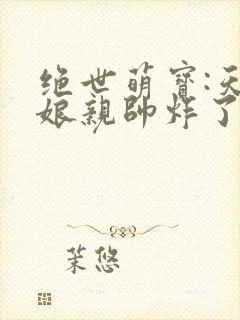 绝世萌寶:天
娘親帥炸了
茉悠